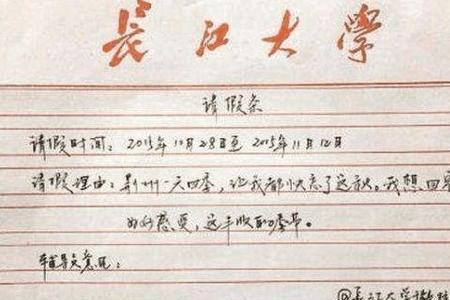 长江大学
请假条
请假时间：2015年10月28日至2015年11月12日
请假理由：荆州一天四季，让我都快忘了这秋。我想回家
好感受，这丰收的季节。
辅导员意见：
@长江大学